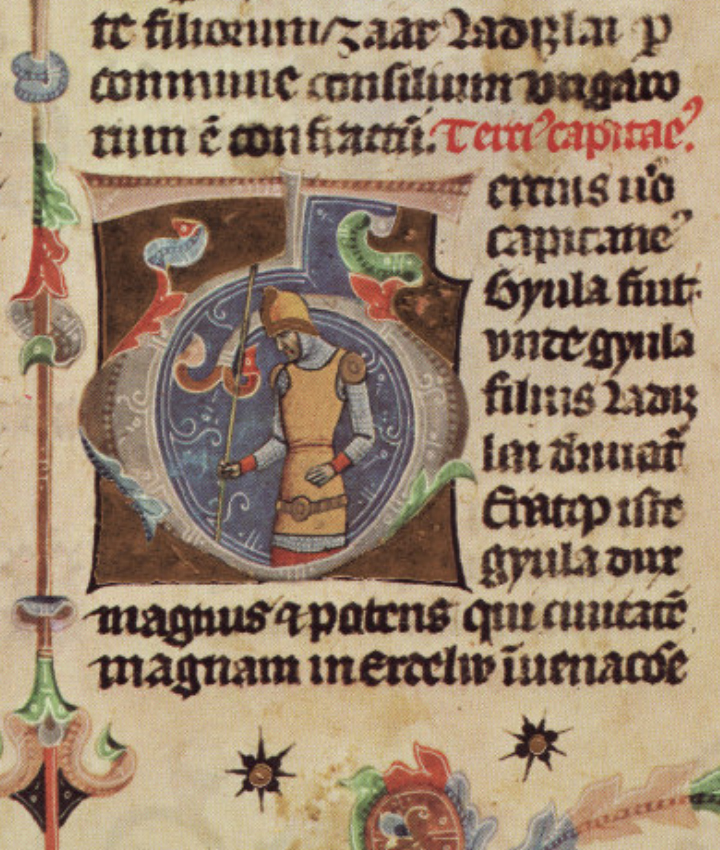 te filiorum zaar Ladizlai p
commune consilium vngaro
rum ē confractū. Terci⁹ capitae⁹.
ercius u̓o
capitane⁹
Gyula fuit
vnde gyula
filius Ladiz
lai diriuat᷑
Erat iste
gyula dux
magnus ⁊ potens qui ciuitatē
magnam in Erdeliw ī uenacōe